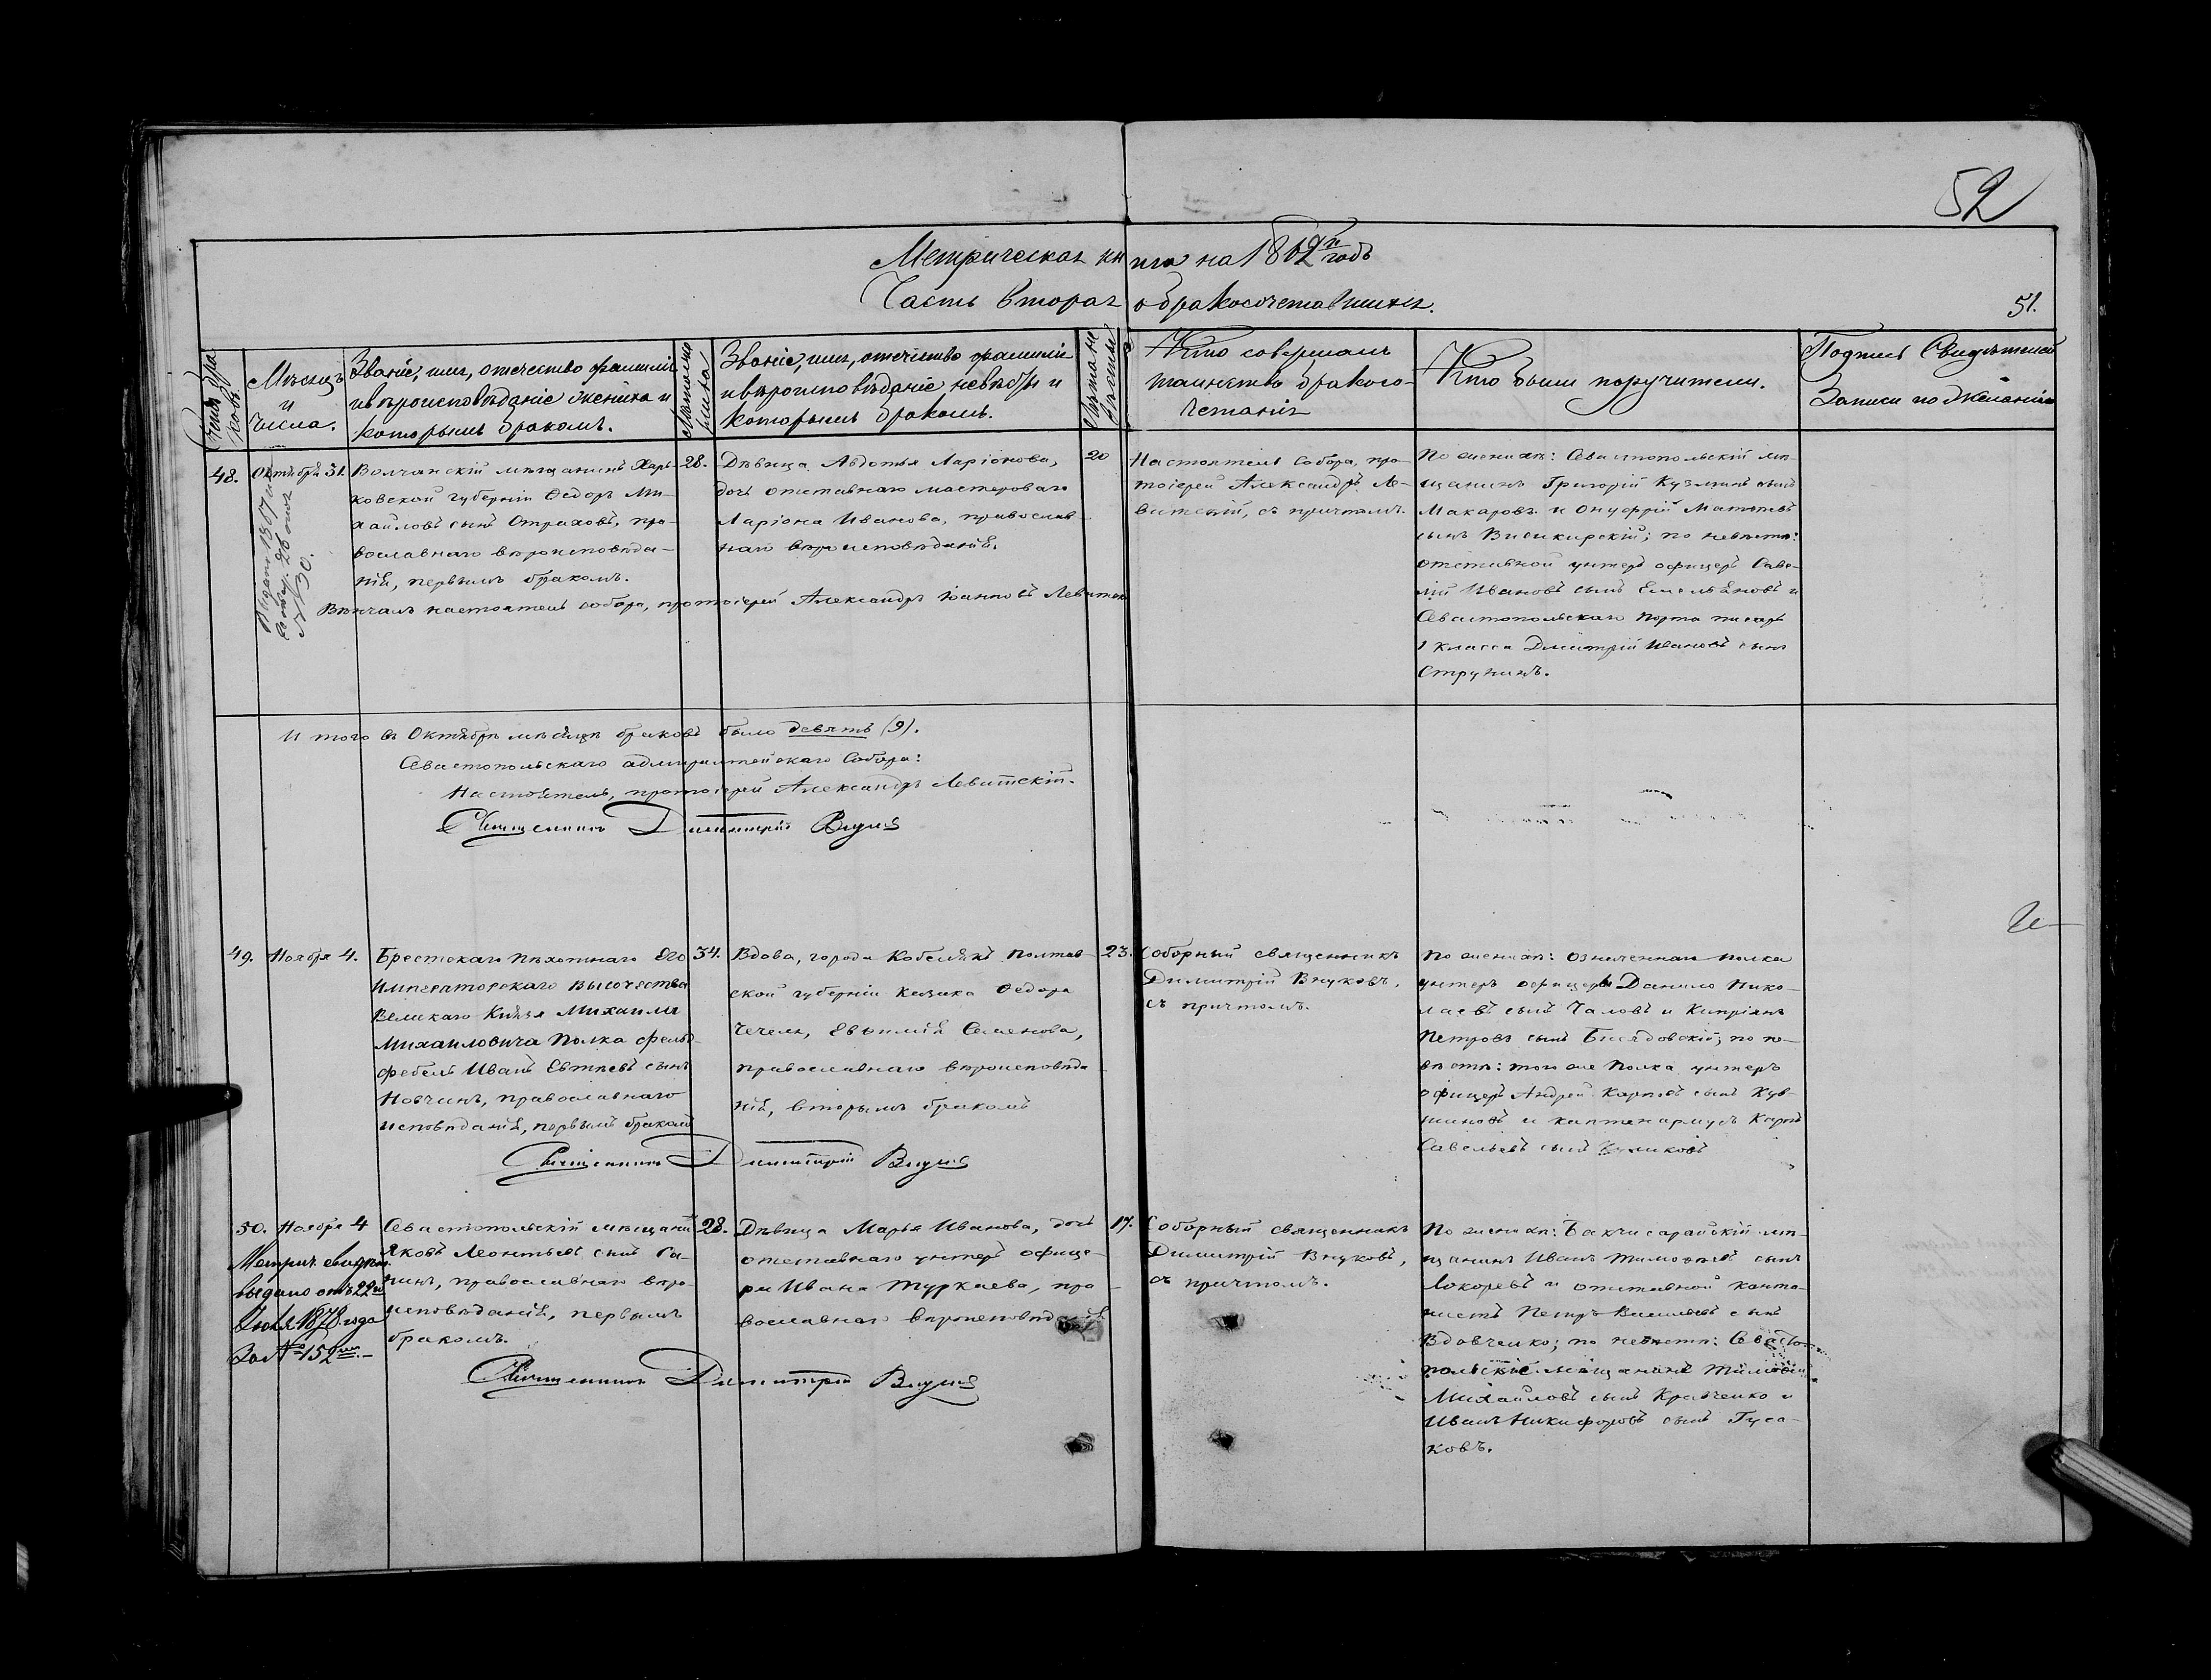 52
Метрическая книга на 1862й годъ
Часть вторая о бракосочетавшихся.
51.
Мѣсяцъ
и
Числа.
Званіе, имя, отечество фамилія
и вѣроисповѣданіе жениха и
которымъ бракомъ.
Званіе, имя, отечество фамилія
и вѣроисповѣданіе невѣсты и
которымъ бракомъ.
Кто совершалъ
таинство бракосо-
четанія
Кто были поручители.
Подпись Свидѣтелей
Записи по желанію
48.
Октября 31.
Выдано 1867 г.
№ 30.
Волчанскій мѣщанинъ Харь-
ковской губерніи Ѳедоръ Ми-
хайловъ сынъ Страховъ, пра-
вославнаго вѣроисповѣда-
нія, первымъ бракомъ.
28.
Дѣвица Авдотья Ларіонова,
дочь отставнаго мастероваго
Ларіона Иванова, православ-
наго вѣроисповѣданія.
20
Вѣнчалъ настоятель собора, протоіерей Александръ Іанновъ Левитскій
Настоятель Собора, про-
тоіерей Александръ Ле-
витскій, съ причтомъ.
По женихѣ: Севастопольскій мѣ-
щанинъ Григорій Кузминъ сынъ
Макаровъ и Онуфрій Матѳѣевъ
сынъ Висикирскій; по невѣстѣ:
отставной унтеръ офицеръ Саве-
лій Ивановъ сынъ Емельяновъ и
Севастопольскаго порта писарь
1 класса Дмитрій Ивановъ сынъ
Струнинъ.
И того въ Октябрѣ мѣсяцѣ браковъ было девять (9).
Севастопольскаго адмиралтейскаго Собора:
Настоятель, протоіерей Александръ Левитскій.
Священникъ Димитрій Внуковъ
49.
Ноября 4.
Брестскаго пѣхотнаго Его
Императорскаго Высочества
Великаго Князя Михаила
Михаиловича Полка фельд-
фебель Иванъ Евтѣевъ сынъ
Новчинъ, православнаго
исповѣданія, первымъ бракомъ
34.
Вдова, города Кобелякъ Полтав-
ской губерніи казака Ѳедора
Чечель, Евѳимія Семенова,
православнаго вѣроисповѣда-
нія, вторымъ бракомъ
23.
Соборный священникъ
Димитрій Внуковъ,
съ причтомъ.
По женихѣ: означеннаго полка
унтеръ офицеры Данило Нико-
лаевъ сынъ Чаловъ и Кипріянъ
Петровъ сынъ Бнядовскій; по не-
вѣстѣ: того же полка унтеръ
офицеръ Андрей Карповъ сынъ Кув-
шиновъ и каптенармусъ Карпъ
Савельевъ сынъ Куликовъ
Священникъ Димитрій Внуковъ
50.
Ноября 4
Метрич. свидѣт.
выдано отъ 22го
Іюля 1878 года
За № 152мъ.
Севастопольскій мѣщанинъ
Яковъ Леонтьевъ сынъ Га-
нинъ, православнаго вѣро-
исповѣданія, первымъ
бракомъ.
28.
Дѣвица Марья Иванова, дочь
отставнаго унтеръ офице-
ра Ивана Туркаева, пра-
вославнаго вѣроисповѣданія
17.
Соборный священникъ
Димитрій Внуковъ,
съ причтомъ.
По женихѣ: Бакчисарайскій мѣ-
щанинъ Иванъ Тимоѳѣевъ сынъ
Локоревъ и отставной канто-
нистъ Петръ Васильевъ сынъ
Вдовченко; по невѣстѣ: Севасто-
польскіе мѣщанинъ Тимоѳей
Михайловъ сынъ Кравченко и
Иванъ Никифоровъ сынъ Гуса-
ковъ.
Священникъ Димитрій Внуковъ